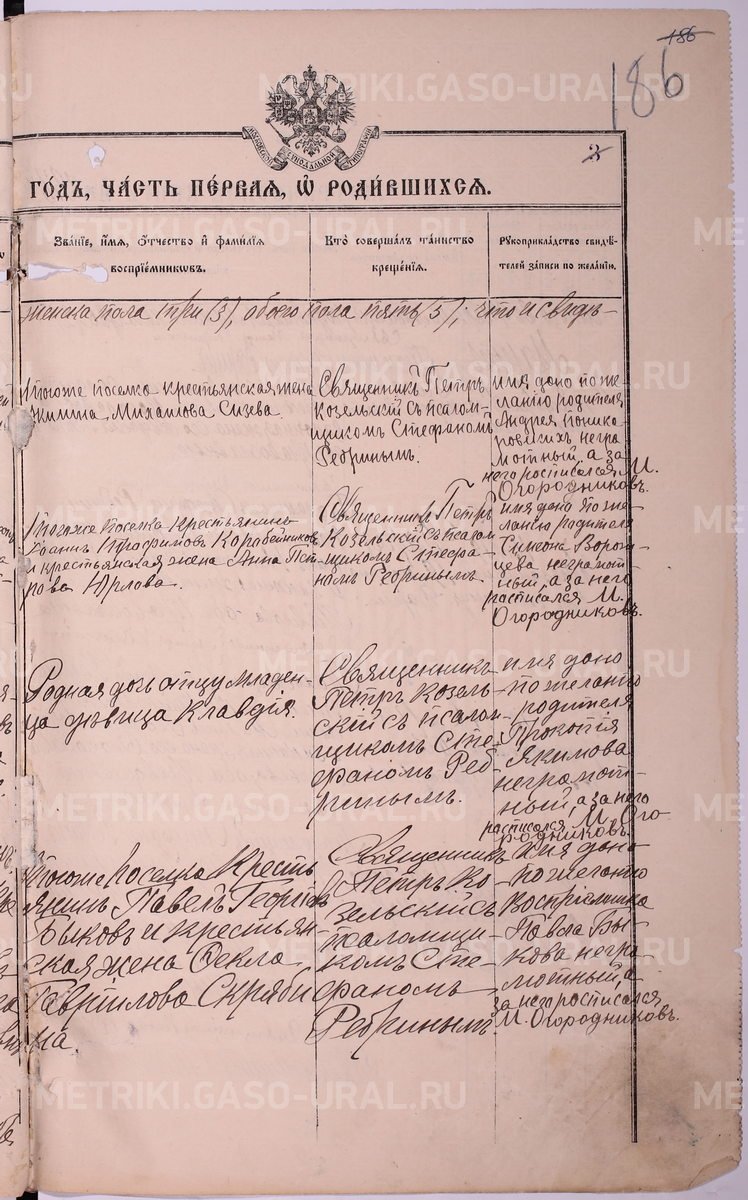 186
186
МОСКОВСКОЙ СѴНОДАЛЬНОЙ ТИПОГРАФІИ
3
ГОДЪ, ЧА́СТЬ ПЕ́РВАЯ, Ѽ РОДИ́ВШИХСЯ.
Зва́нїе, и́мя, ѻ́тчество и҆ фами́лїя
воспрїе́мниковъ.
Кто̀ соверша́лъ та́инство
креще́нїя.
Рꙋкоприкла́дство свидѣ́-
телей за́писи по жела́нїю.
женска пола три (3), обоего пола пять (5); что и свидѣ-
тогоже поселка крестьянская жена
Акилина Михаилова Сизева.
Священникъ Петръ
Козельскій съ псалом-
щикомъ Стефаномъ
Ребринымъ.
имя дано по же-
ланію родителя
Андрея
негра-
мотный, а за
него росписался М.
Огородниковъ.
тогоже поселка крестьянинъ
Іоаннъ Трофимовъ Коробейниковъ
и крестьянская жена Анна Пет-
рова Юрлова.
Священникъ Петръ
Козельскій съ псалом-
щикомъ Стефа-
номъ Ребринымъ.
имя дано по же-
ланію родителя
Симеона Ворот-
цева неграмот-
ный, а за него
росписался М.
Огородниковъ.
Родная дочь отцу младен-
ца дѣвица Клавдія.
Священникъ
Петръ Козель-
скій съ псалом-
щикомъ Сте-
фаномъ Реб-
ринымъ.
имя дано
по желанію
родителя
Прокопія
Якимова
неграмот-
ный, а за него
росписался, М. Ого-
родниковъ.
тогоже поселка кресть-
янинъ Павелъ Георгіевъ
Быковъ и крестьян-
ская жена Ѳекла
Гавріилова Скряби-
на.
Священникъ
Петръ Ко-
зельскій съ
псаломщи-
комъ Сте-
фаномъ
Ребринымъ.
имя дано
по желанію
воспріемника
Павла Бы-
кова негра-
мотный, а
за него росписался
М. Огородниковъ.
METRIKI.GASO-URAL.RU